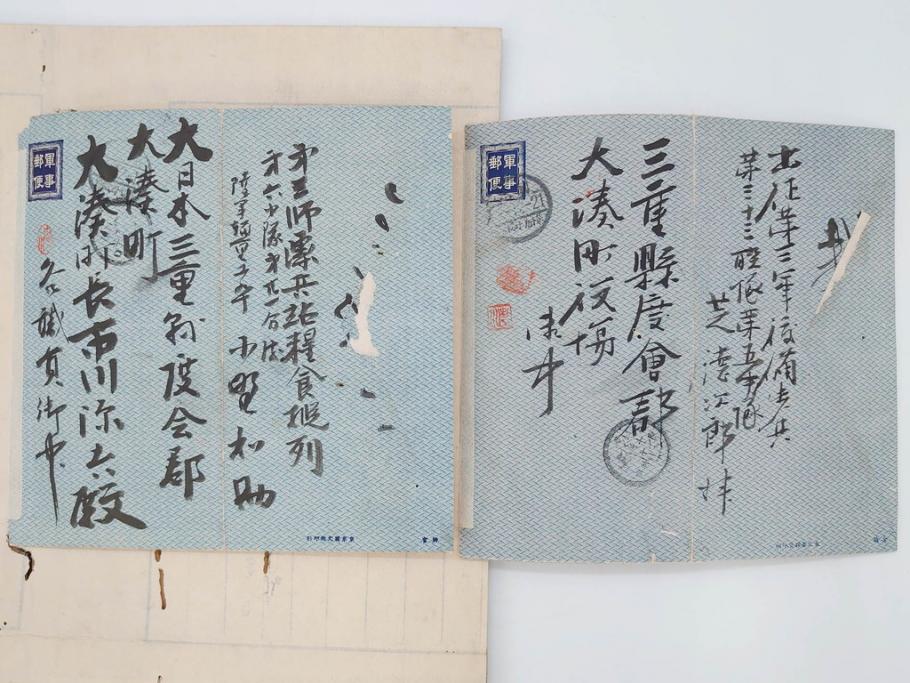 出征第三軍後備歩兵
第三十三聯隊第五中隊
芝湊次郎 拝
三重縣度會郡
大湊町役場
御中
軍事
郵便
第三師團兵站糧食縦列
第六小隊第廿一分隊
陸軍輜重 小野和助
大日本三重縣度会郡
大湊町
大湊町長市川源六殿
各職員御中
軍事
郵便